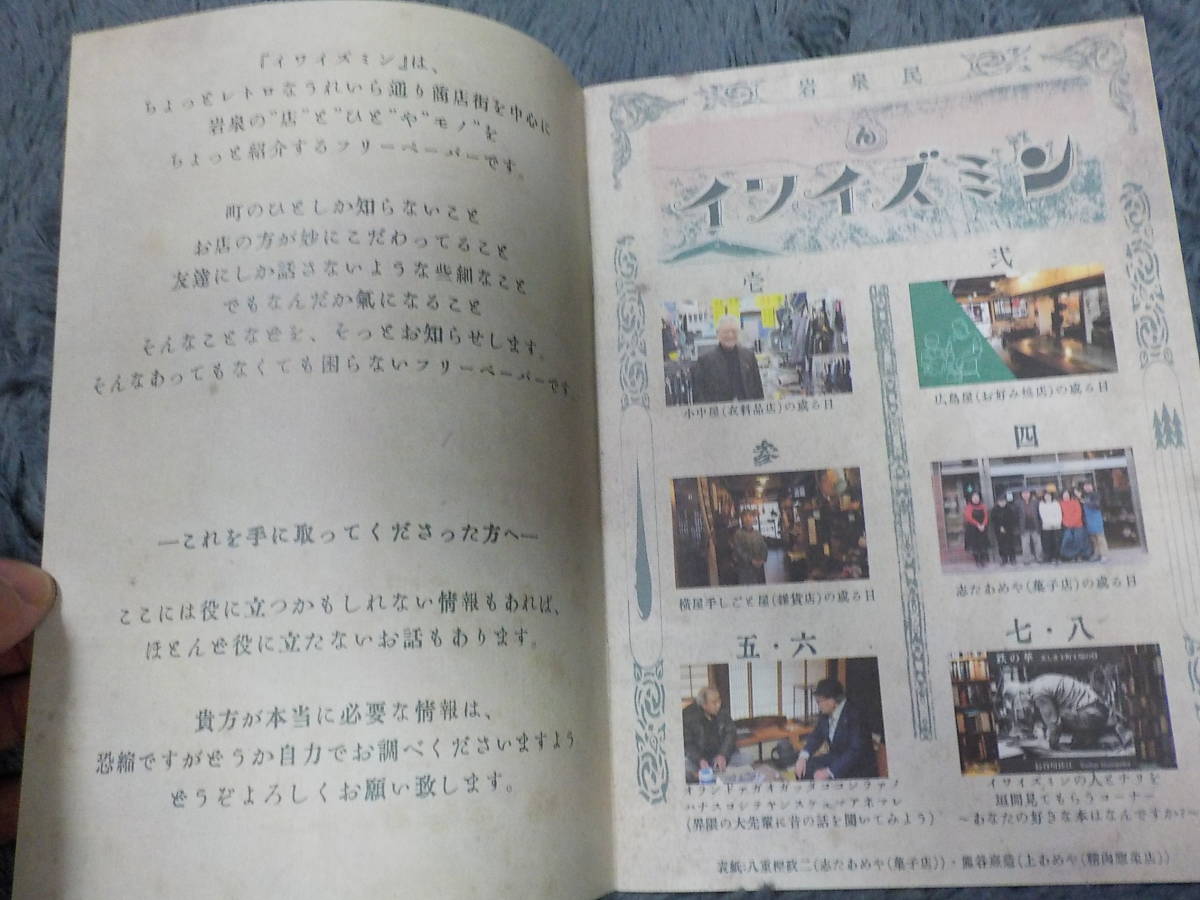 『イワイズミン』は、
ちょっとレトロなうれいら通り商店街を中心に
岩泉の"店"と"ひと"や"モノ"を
ちょっと紹介するフリーペーパーです。
町のひとしか知らないこと
お店の方が妙にこだわってること
友達にしか話さないような些細なこと
でもなんだか氣になること
そんなことなどを、そっとお知らせします。
そんなあってもなくても困らないフリーペーパーです
―これを手に取ってくださった方へ―
ここには役に立つかもしれない情報もあれば、
ほとんど役に立たないお話もあります。
貴方が本当に必要な情報は、
恐縮ですがどうか自力でお調べくださいますよう
どうぞよろしくお願い致します。
岩泉民
ん
イワイズミン
壱
小中屋(衣料品店)の或る日
弐
広島屋(お好み焼店)の或る日
参
横屋手しごと屋(雑貨店)の或る日
四
志たあめや(菓子店)の或る日
五・六
(界隈の大先輩に昔の話を聞いてみよう)
七・八
鉄の華
イワイズミンの人とナリを
垣間見てもらうコーナー
～あなたの好きな本はなんですか?～
表紙:八重樫 (志たあめや(菓子店))・熊谷 (上むめや(精肉惣菜店))